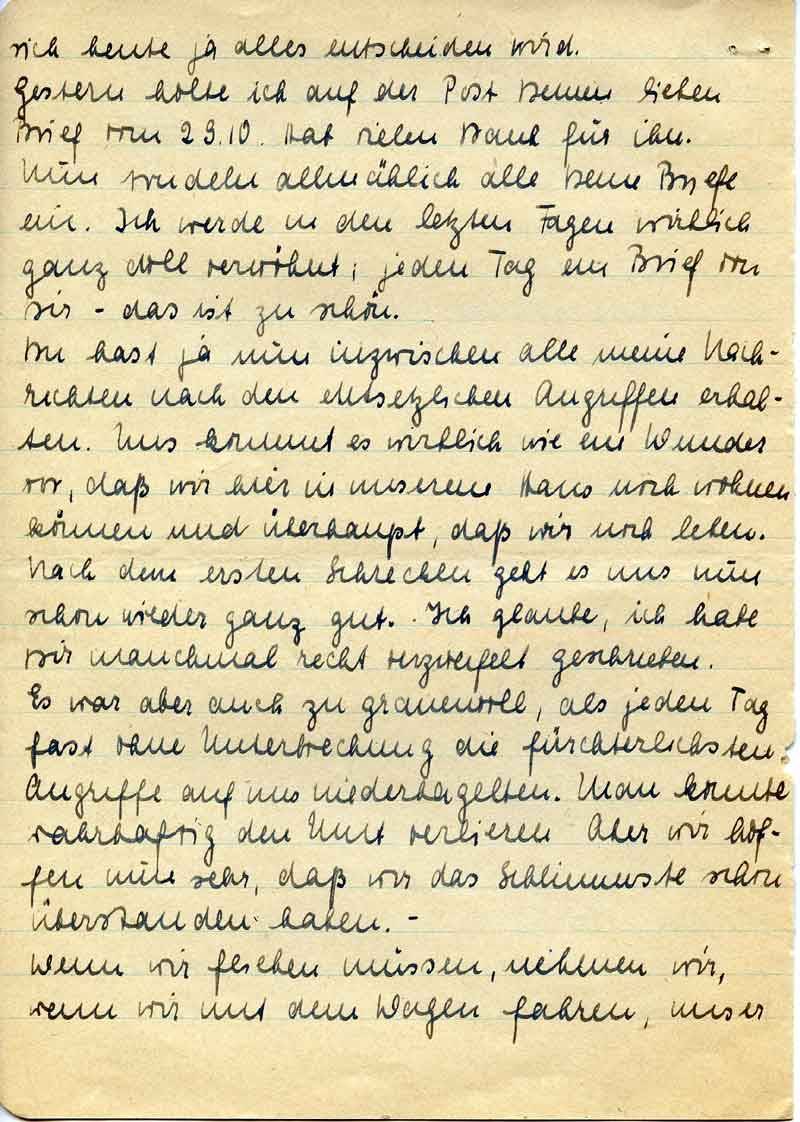 sich heute ja alles entscheiden wird.
Gestern holte ich auf der Post Deinen lieben
Brief vom 29.10. Hab vielen Dank für ihn.
Nun trudeln allmählich alle Deine Briefe
ein. Ich werde in den letzten Tagen wirklich
ganz doll verwöhnt; jeden Tag ein Brief von
Dir - das ist zu schön.
Du hast ja nun inzwischen alle meine Nach-
richten nach den entsetzlichen Angriffen erhal-
ten. Uns kommt es wirklich wie ein Wunder
vor, daß wir hier in unserem Haus noch wohnen
können und überhaupt, daß wir noch leben.
Nach dem ersten Schrecken geht es uns nun
schon wieder ganz gut. Ich glaube, ich habe
Dir manchmal recht verzweifelt geschrieben.
Es war aber auch zu grauenvoll, als jeden Tag
fast ohne Unterbrechung die fürchterlichsten
Angriffe auf uns niederhagelten. Man konnte
wahrhaftig den Mut verlieren. Aber wir hof-
fen nun sehr, daß wir das Schlimmste schon
überstanden haben. -
Wenn wir fliehen müssen, nehmen wir,
wenn wir mit dem Wagen fahren, unser